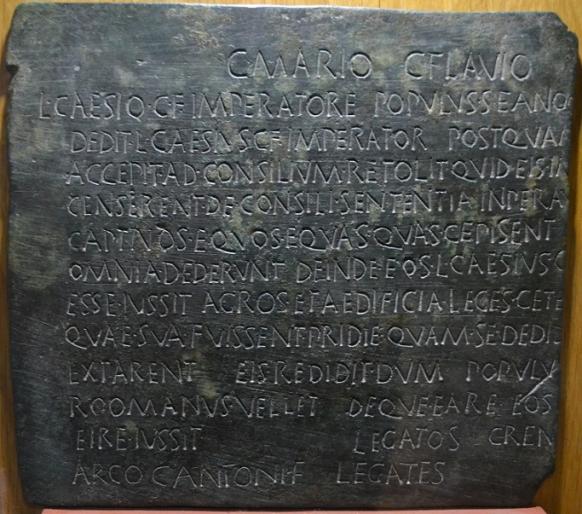 C·MARIO C·FLAVIO
L·CAESIO·C·F·IMPERATORE POPVLVS SEANOC
DEDIT·L·CAESIVS·C·F·IMPERATOR POSTQVAM
ACCEPIT AD·CONSILIVM·RETOLIT·QVID·EIS·IM
CENSERENT·DE·CONSILI·SENTENTIA INPERA
CAPTIVOS·EQVOS·EQVAS·QVAS·CEPISENT
OMNIA·DEDERVNT DEINDE·EOS·L·CAESIVS·C
ESSE·IVSSIT AGROS·ET·AEDIFICIA·LEGES·CETE
QVAE·SVA·FVISSENT·PRIDIE·QVAM·SE·DEDI
EXTARENT EIS·REDIDIT·DVM POPVLV
ROOMANVS VELLET DEQVE·EA·RE·EOS
EIRE·IVSSIT LEGATOS CREN
ARCO CANTONI·F LEGATES